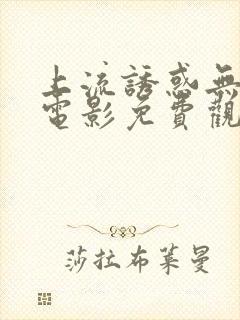 上流誘惑無
電影免費觀
莎拉布萊曼